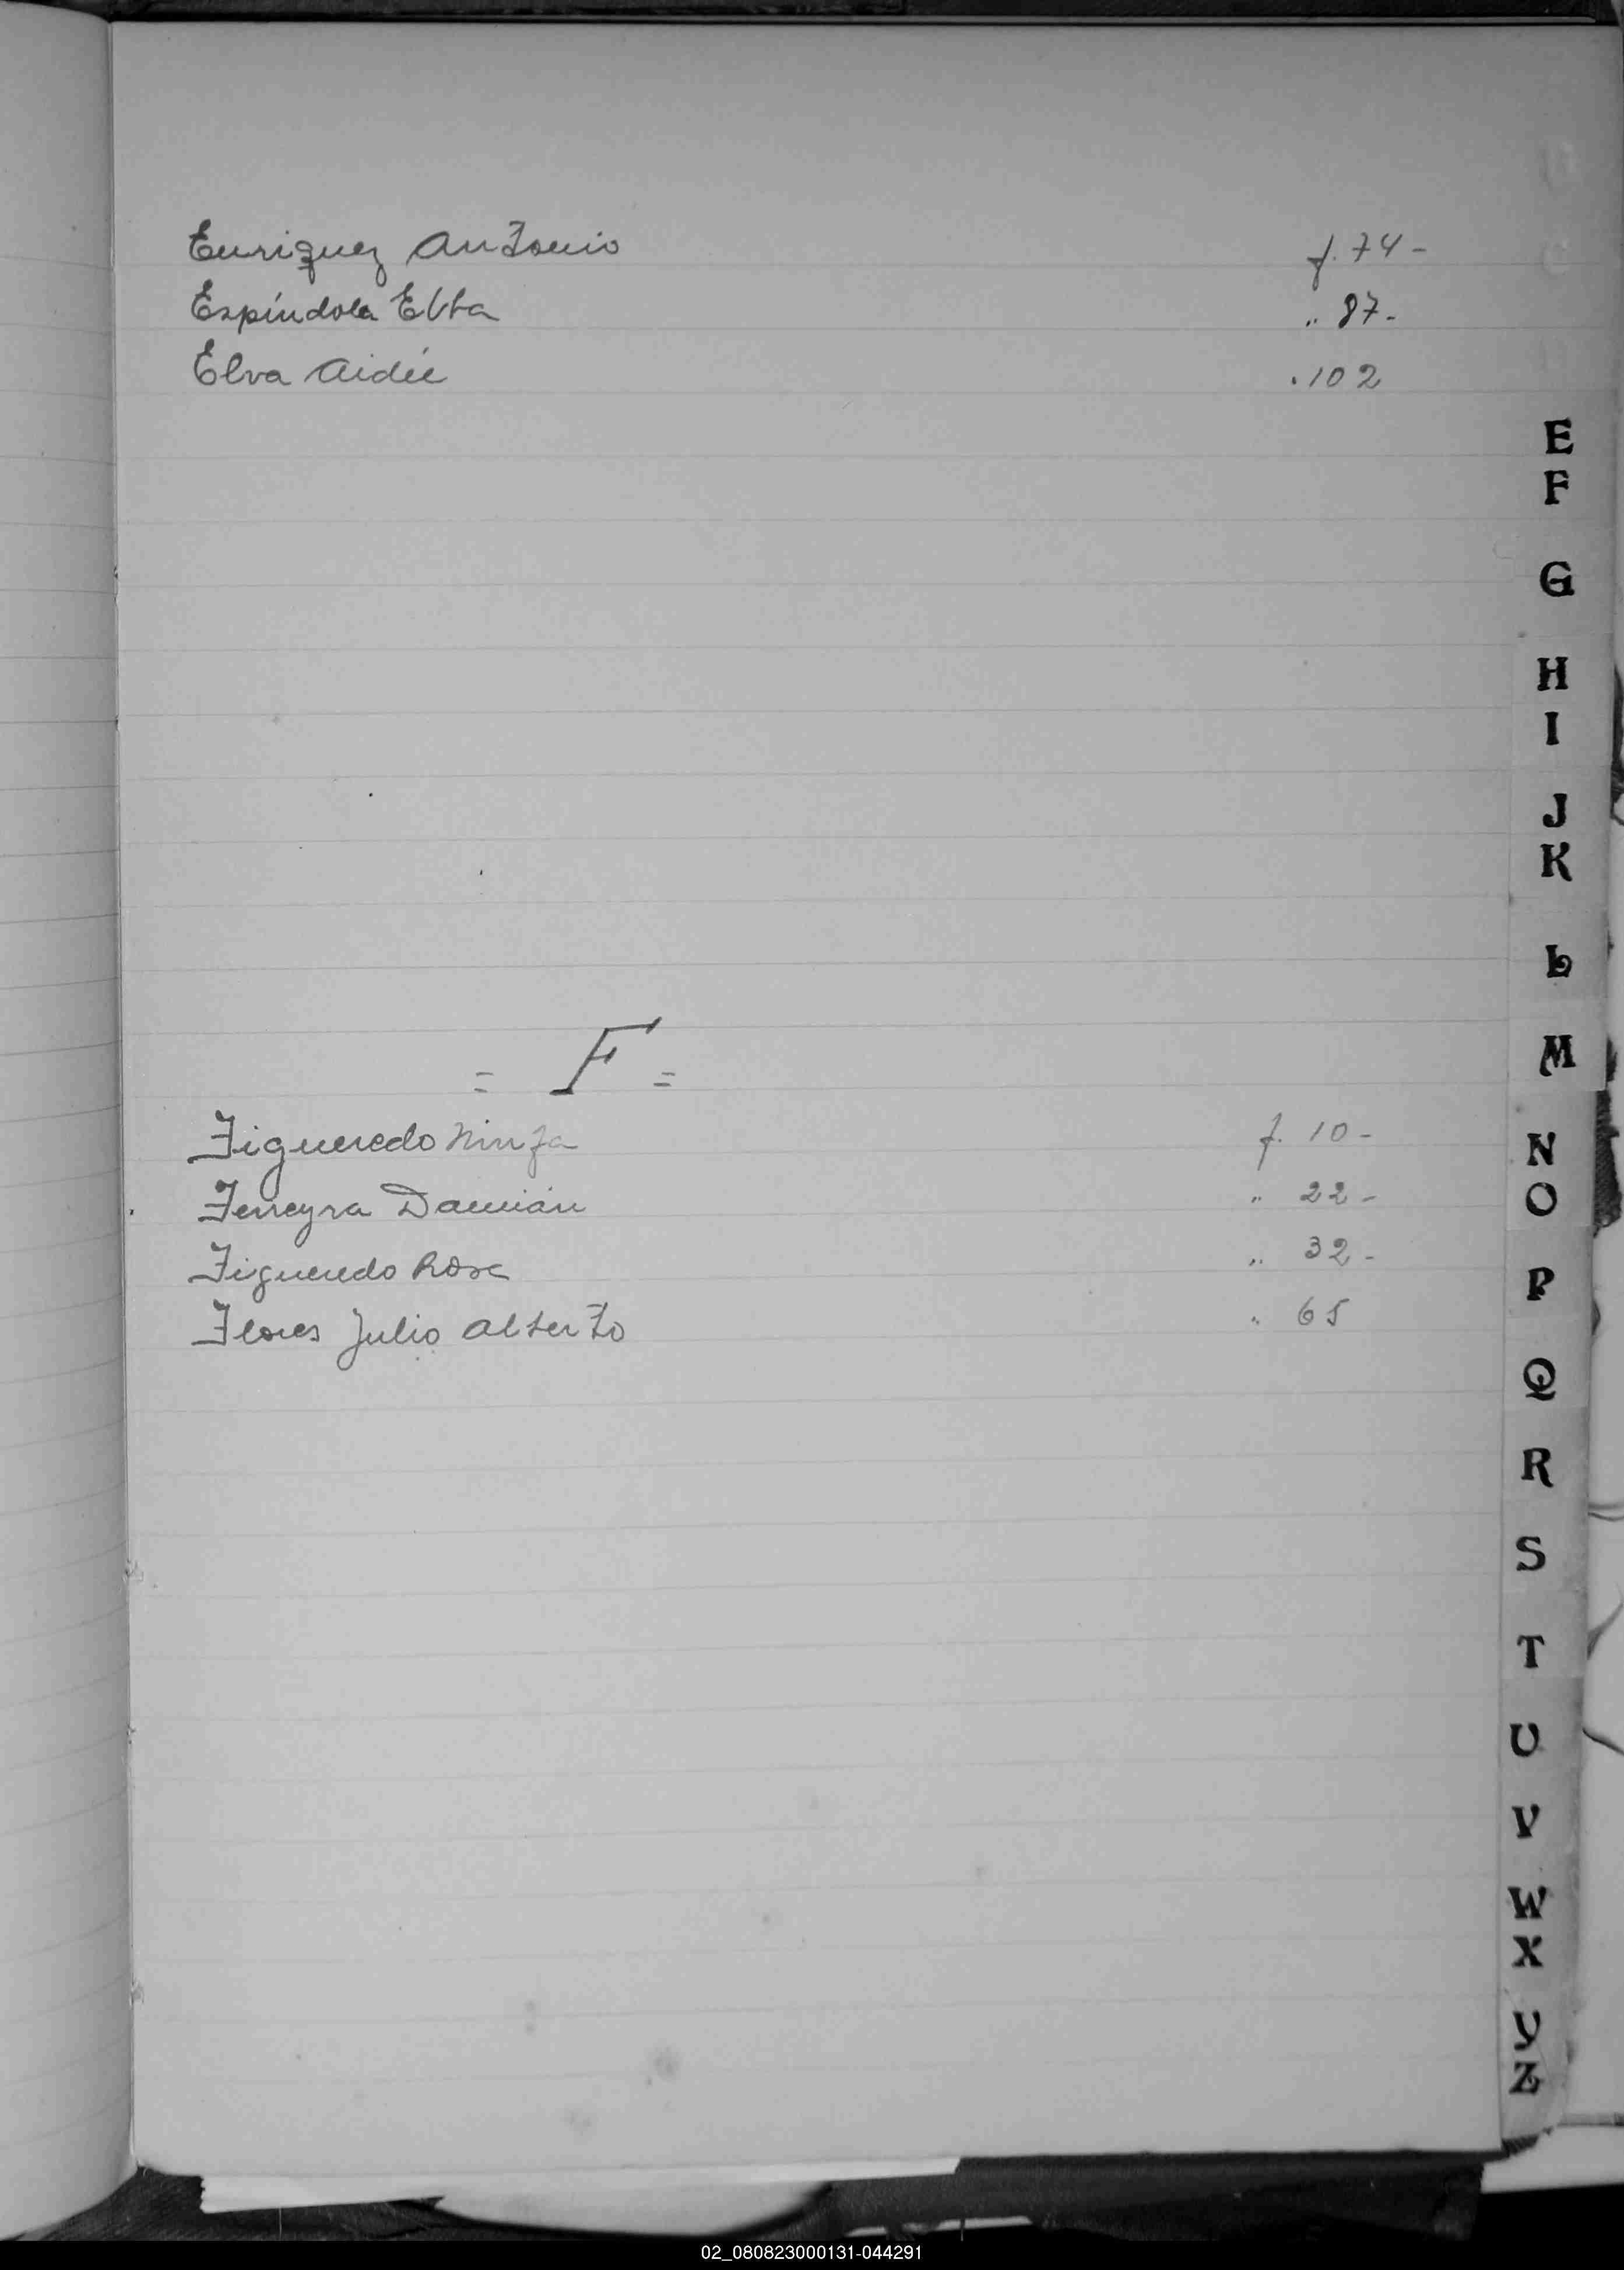 Enriquez Antonio f. 74 -
Espíndola Elba " 87 -
Elva Aidée " 102
E
F
G
H
I
J
K
L
M
= F =
Figueredo Ninfa f. 10 -
Ferreyra Damián " 22 -
Figueredo Rosa " 32 -
Flores Julio Alberto " 65
N
O
P
Q
R
S
T
U
V
W
X
Y
Z
02_080823000131-044291